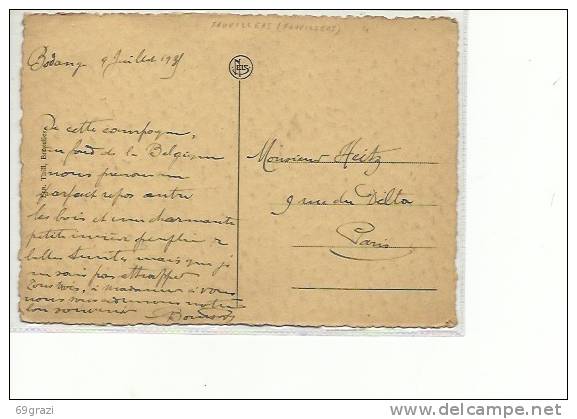 FAUVILLERS (FAUVILLERS)
Bodange 9 Juillet 193
NELS
De cette campagne,
au fond de la Belgique
nous prenons un
parfait repos entre
les bois et une charmante
petite rivière peuplée de
belles truites mais que je
ne sais pas attraper
Tous trois, à madame à vous
nous vous adressons notre
bon souvenir
Monsieur Heitz
9 rue du Delta
Paris
Thill, Bruxelles
69grazi
delcampe.net